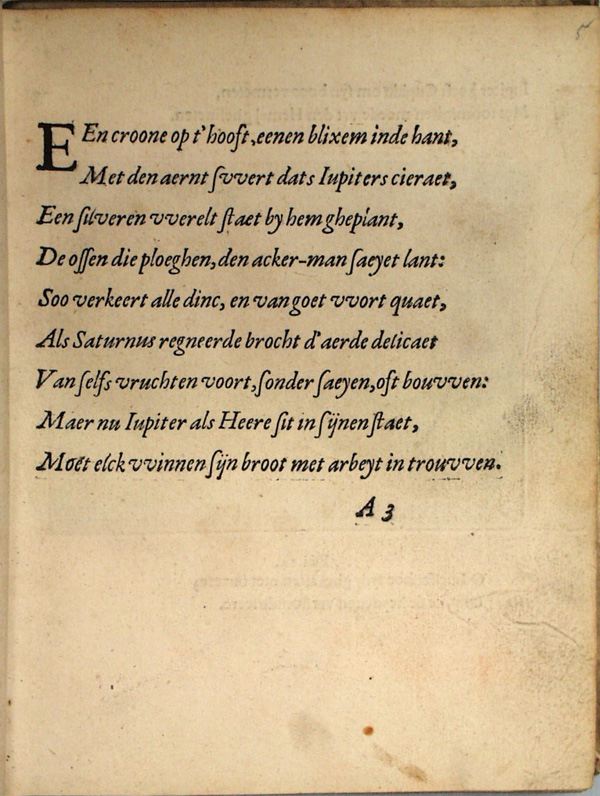 5
EEn croone op t'hooft, eenen blixem inde hant,
Met den aernt ſvvert dats Iupiters cieraet,
Een ſilveren vverelt ſtaet by hem gheplant,
De oſſen die ploeghen, den acker-man ſaeyet lant:
Soo verkeert alle dinc, en van goet vvort quaet,
Als Saturnus regneerde brocht d'aerde delicaet
Van ſelfs vruchten voort, ſonder ſaeyen, oft bouvven:
Maer nu Iupiter als Heere ſit in ſijnen ſtaet,
Moët elck vvinnen ſijn broot met arbeyt in trouvven.
A 3